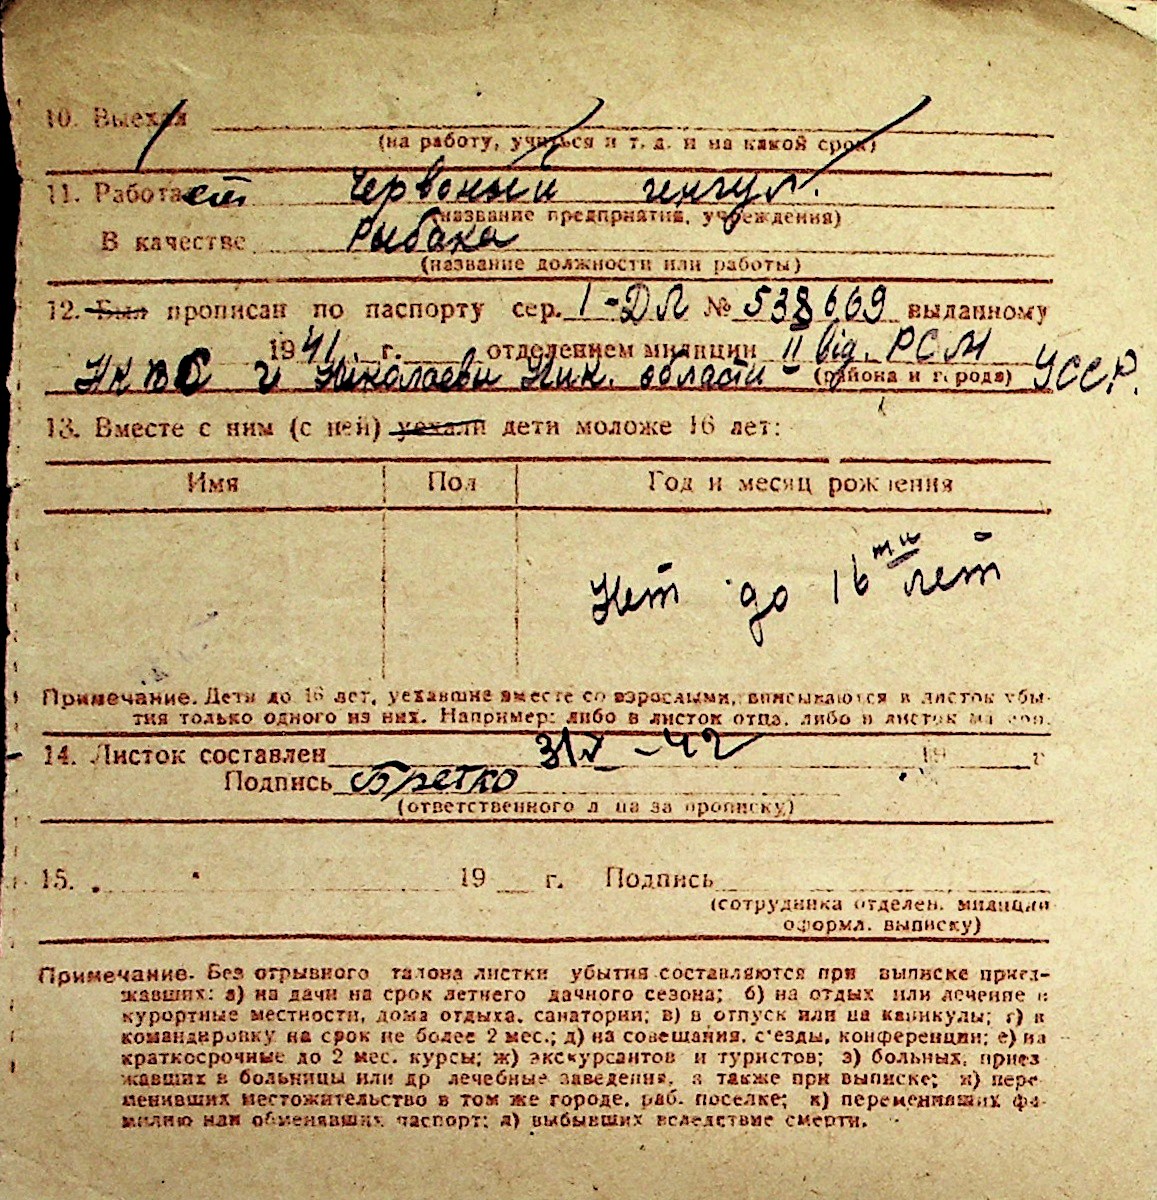 10. Выехал
(на работу, учиться и т. д. и на какой срок)
11. Работает Червоный ингул.
(название предприятия, учреждения)
В качестве Рыбака
(название должности или работы)
12. Был прописан по паспорту сер. I-ДЛ № 538669 выданному
1941 г. отделением милиции II від. РСМ
НКВС г Николаеви Ник. области - УССР.
(района и города)
13. Вместе с ним (с ней) уехали дети моложе 16 лет:
Имя Пол Год и месяц рождения
Нет до 16ти лет
Примечание. Дети до 16 лет, уехавшие вместе со взрослыми, вписываются в листок убы-
тия только одного из них. Например: либо в листок отца, либо в листок
14. Листок составлен 31/V -42 19 г
Подпись Бретко
(ответственного лица за прописку)
15. 19 г. Подпись
(сотрудника отделен. милиции
оформл. выписку)
Примечание. Без отрывного талона листки убытия составляются при выписке приез-
жавших: а) на дачи на срок летнего дачного сезона; б) на отдых или лечение в
курортные местности, дома отдыха, санатории; в) в отпуск или на каникулы; г) в
командировку на срок не более 2 мес.; д) на совещания, с'езды, конференции; е) на
краткосрочные до 2 мес. курсы; ж) экскурсантов и туристов; з) больных, приез-
жавших в больницы или др лечебные заведения, а также при выписке; и) пере-
менивших местожительство в том же городе, раб. поселке; к) переменивших фа-
милию или обменявших паспорт; л) выбывших вследствие смерти.